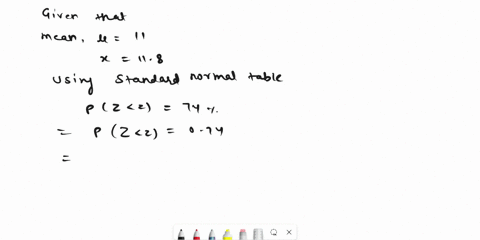 Given that
mean, μ = 11
x = 11.8
Using standard normal table
P (Z < z) = 74 %
= P (Z < z) = 0.74
=